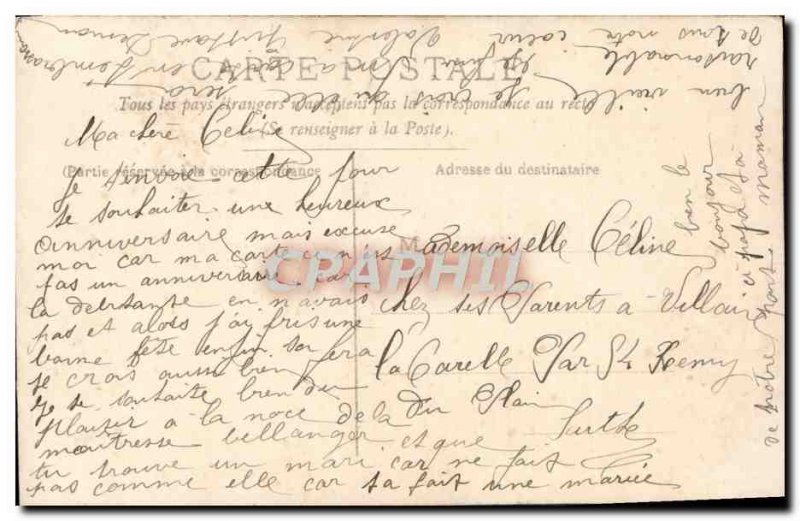 CARTE POSTALE
Tous les pays étrangers n'acceptent pas la correspondance au recto
(Se renseigner à la Poste).
(Partie réservée à la correspondance
Adresse du destinataire
Ma chère Celine
Je t'envoie cette pour
te souhaiter une heureux
anniversaire mais excuse
moi car ma carte n'est
pas un anniversaire car
la debitante en n'avais
pas et alors j'ai pris une
bonne fête enfin sa fera
je crois aussi bien
Je te souhaite bien du
plaisir a la noce de la
maîtresse bellanger et que
tu trouve un mari car ne fait
pas comme elle car sa fait une mariée
bien vieille Je crois qu'elle sera
raisonnable
de tous notre cœur
Gustave
Mademoiselle Céline
chez ses Parents a Villair
la Carelle Par St Remy
du Plain
Sarthe
bien le
bonjour
a papa et a
maman
de notre part
CARPHIL